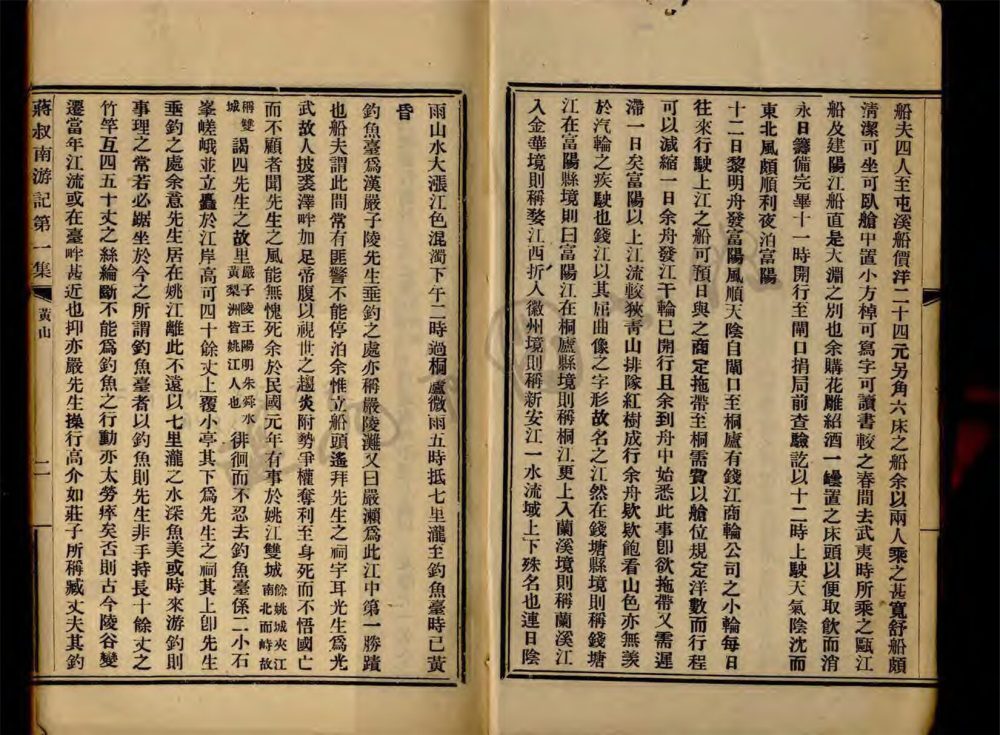 船夫四人至屯溪船價洋二十四元另角六床之船余以兩人乘之甚寬舒船頗
清潔可坐可臥艙中置小方棹可寫字可讀書較之春間去武夷時所乘之甌江
船及建陽江船直是天淵之別也余購花雕紹酒一罎置之床頭以便取飲而消
永日籌備完畢十一時開行至閘口捐局前查驗訖以十二時上駛天氣陰沈而
東北風頗順利夜泊富陽
十二日黎明舟發富陽風順天陰自閘口至桐廬有錢江商輪公司之小輪每日
往來行駛上江之船可預日與之商定拖帶至桐需費以艙位規定洋數而行程
可以減縮一日余舟發江干輪已開行且余到舟中始悉此事卽欲拖帶又需遲
滯一日矣富陽以上江流較狹靑山排隊紅樹成行余舟欵欵飽看山色亦無羨
於汽輪之疾駛也錢江以其屈曲像之字形故名之江然在錢塘縣境則稱錢塘
江在富陽縣境則曰富陽江在桐廬縣境則稱桐江更上入蘭溪境則稱蘭溪江
入金華境則稱婺江西折入徽州境則稱新安江一水流域上下殊名也連日陰
雨山水大漲江色混濁下午二時過桐廬微雨五時抵七里瀧至釣魚臺時已黃
昏
釣魚臺爲漢嚴子陵先生垂釣之處亦稱嚴陵灘又曰嚴瀨爲此江中第一勝蹟
也船夫謂此間常有匪警不能停泊余惟立船頭遙拜先生之祠宇耳光生爲光
武故人披裘澤畔加足帝腹以視世之趨炎附勢爭權奪利至身死而不悟國亡
而不顧者聞先生之風能無愧死余於民國元年有事於姚江雙城餘姚城夾江南北而峙故
稱雙城謁四先生之故里嚴子陵王陽明朱舜水黃梨洲皆姚江人也徘徊而不忍去釣魚臺係二小石
峯嵯峨並立矗於江岸高可四十餘丈上覆小亭其下爲先生之祠其上卽先生
垂釣之處余意先生居在姚江離此不遠以七里瀧之水深魚美或時來游釣則
事理之常若必踞坐於今之所謂釣魚臺者以釣魚則先生非手持長十餘丈之
竹竿互四五十丈之絲綸斷不能爲釣魚之行動亦太勞瘁矣否則古今陵谷變
遷當年江流或在臺畔甚近也抑亦嚴先生操行高介如莊子所稱臧丈夫其釣
蔣叔南游記第一集 黃山 二